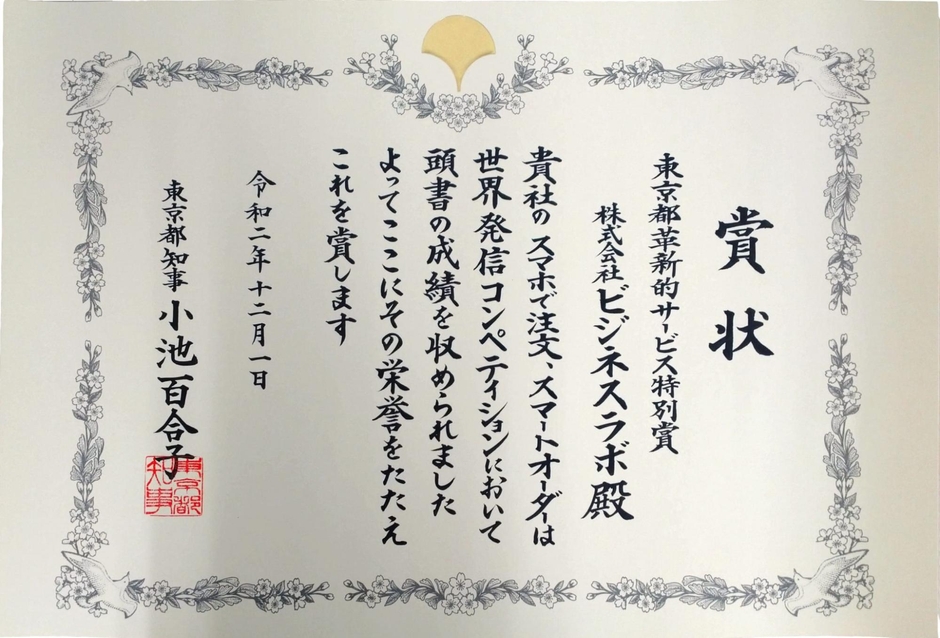 賞状
東京都革新的サービス特別賞
株式会社ビジネスラボ殿
貴社のスマホで注文、スマートオーダーは
世界発信コンペティションにおいて
頭書の成績を収められました
よってここにその栄誉をたたえ
これを賞します
令和二年十二月一日
東京都知事 小池百合子
東京都
知事